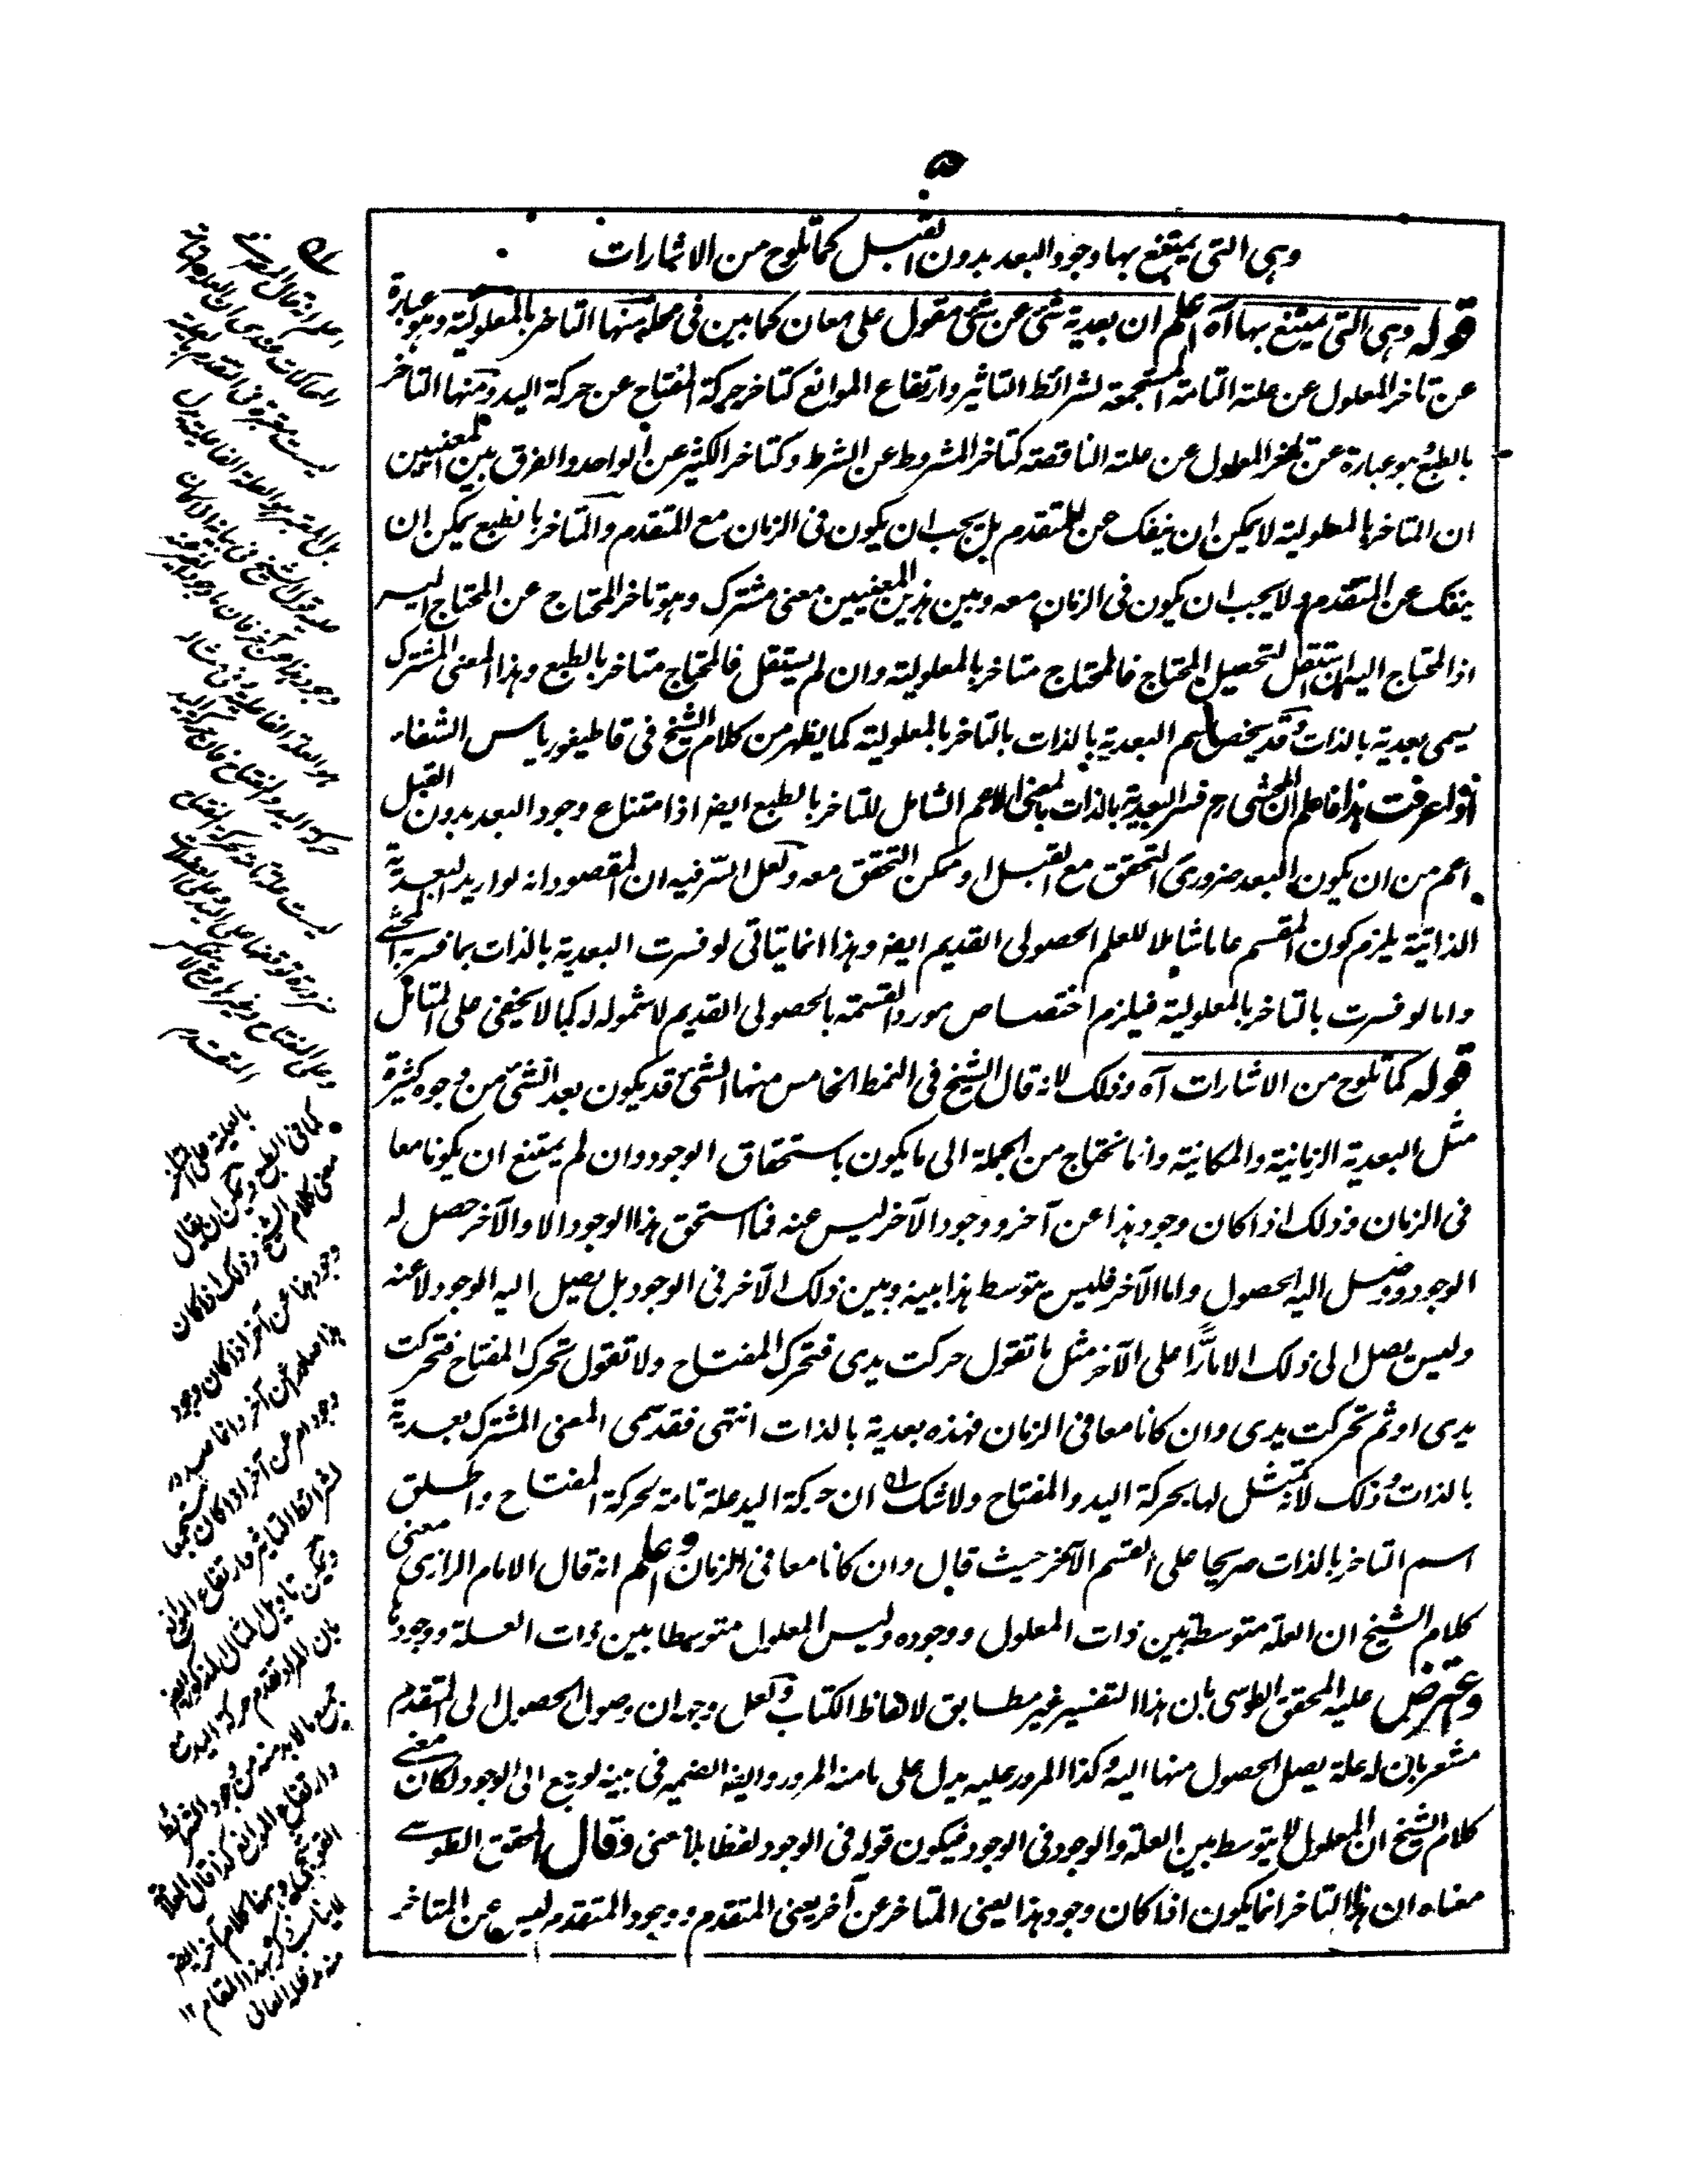 ۵
وهى التى يمتنع بها وجود البعد بدون القبل كما تلوح من الاشارات
قوله وهى التى يمتنع بها آه اعلم ان بعدية شئ عن شئ مقول على معان كما بين فى محله منها التاخر بالمعلولية وهو عبارة
عن تاخر المعلول عن علته التامة المستجمعة لشرائط التاثير وارتفاع الموانع كتاخر حركة المفتاح عن حركة اليد ومنها التاخر
بالطبع وهو عبارة عن تاخر المعلول عن علته الناقصة كتاخر المشروط عن الشرط وكتاخر الكثير عن الواحد والفرق بين المعنيين
ان المتاخر بالمعلولية لا يمكن ان ينفك عن المتقدم بل يجب ان يكون فى الزمان مع المتقدم والمتاخر بالطبع يمكن ان
ينفك عن المتقدم ولا يجب ان يكون فى الزمان معه وبين هذين المعنيين معنى مشترك وهو تاخر المحتاج عن المحتاج اليه
اذ المحتاج اليه ان استقل لتحصيل المحتاج فالمحتاج متاخر بالمعلولية وان لم يستقل فالمحتاج متاخر بالطبع وهذا المعنى المشترك
يسمى بعدية بالذات وقد يخص اسم البعدية بالذات بالتاخر بالمعلولية كما يظهر من كلام الشيخ فى قاطيغورياس الشفاء
اذا عرفت هذا فاعلم ان المحشى رح فسر البعدية بالذات بالمعنى الاعم الشامل للتاخر بالطبع ايضا اذ امتناع وجود البعد بدون القبل
اعم من ان يكون البعد ضرورى التحقق مع القبل او ممكن التحقق معه ولعل السر فيه ان المقصود انه لو اريد البعدية
الذاتية يلزم كون المقسم عاما شاملا للعلم الحصولى القديم ايضا وهذا انما يتاتى لو فسرت البعدية بالذات بما فسر به المحشى
واما لو فسرت بالتاخر بالمعلولية فيلزم اختصاص مورد القسمة بالحصولى القديم لا شموله له كما لا يخفى على المتامل
قوله كما تلوح من الاشارات آه وذلك لانه قال الشيخ فى النمط الخامس منها الشئ قد يكون بعد الشئ من وجوه كثيرة
مثل البعدية الزمانية والمكانية وانما نحتاج من الجملة الى ما يكون باستحقاق الوجود وان لم يمتنع ان يكونا معا
فى الزمان وذلك اذا كان وجود هذا عن آخر ووجود الآخر ليس عنه فما استحق هذا الوجود الا والآخر حصل له
الوجود ووصل اليه الحصول واما الآخر فليس يتوسط هذا بينه وبين ذلك الآخر فى الوجود بل يصل اليه الوجود لا عنه
وليس يصل الى ذلك الا مارًّا على الآخر مثل ما تقول حركت يدى فتحرك المفتاح ولا تقول تحرك المفتاح فتحركت
يدى او ثم تحركت يدى وان كانا معا فى الزمان فهذه بعدية بالذات انتهى فقد سمى المعنى المشترك بعدية
بالذات وذلك لانه تمثل لها بحركة اليد والمفتاح ولا شك ان حركة اليد علة تامة لحركة المفتاح واطلق
اسم التاخر بالذات صريحا على القسم الآخر حيث قال وان كانا معا فى الزمان واعلم انه قال الامام الرازى معنى
كلام الشيخ ان العلة متوسطة بين ذات المعلول ووجوده وليس المعلول متوسطا بين ذات العلة ووجودها
واعترض عليه المحقق الطوسى بان هذا التفسير غير مطابق لالفاظ الكتاب ولعل وجهه ان وصول الحصول الى المتقدم
مشعر بان له علة يصل الحصول منها اليه وكذا المرور عليه يدل على ما منه المرور وايضا الضمير فى بينه لو رجع الى الوجود لكان معنى
كلام الشيخ ان المعلول لا يتوسط بين العلة والوجود فى الوجود فيكون قوله فى الوجود لفظا بلا معنى وقال المحقق الطوسى
معناه ان هذا التاخر انما يكون اذا كان وجود هذا يعنى المتاخر عن آخر يعنى المتقدم ووجود المتقدم ليس عن المتاخر
هو العلة الفاعلية
حركة اليد والمفتاح فان حركة اليد
ليست علة تامة لحركة المفتاح
كما فى الطبع ويمكن ان يقال
معنى كلام الشيخ وذلك اذا كان
وجود هذا عن آخر اذا كان وجود
هذا صادرا عن آخر وانما يصدر
وجود امر عن آخر اذا كان مستجمعا
لشرائط التاثير وارتفاع الموانع
ويمكن تاويل المثال المذكور ايضا
بان المراد تقدم حركة اليد مع
جميع ما لا بد منه من وجود الشرائط
وارتفاع الموانع كذا قال العلامة
القوشجى وههنا كلام آخر ايضا
لا يناسب ذكره بهذا المقام ١٢
منه مد ظله العالى